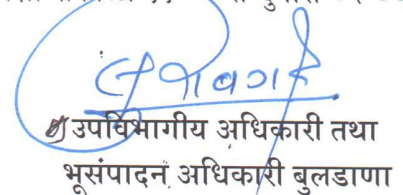 उपविभागीय अधिकारी तथा
भूसंपादन अधिकारी बुलडाणा